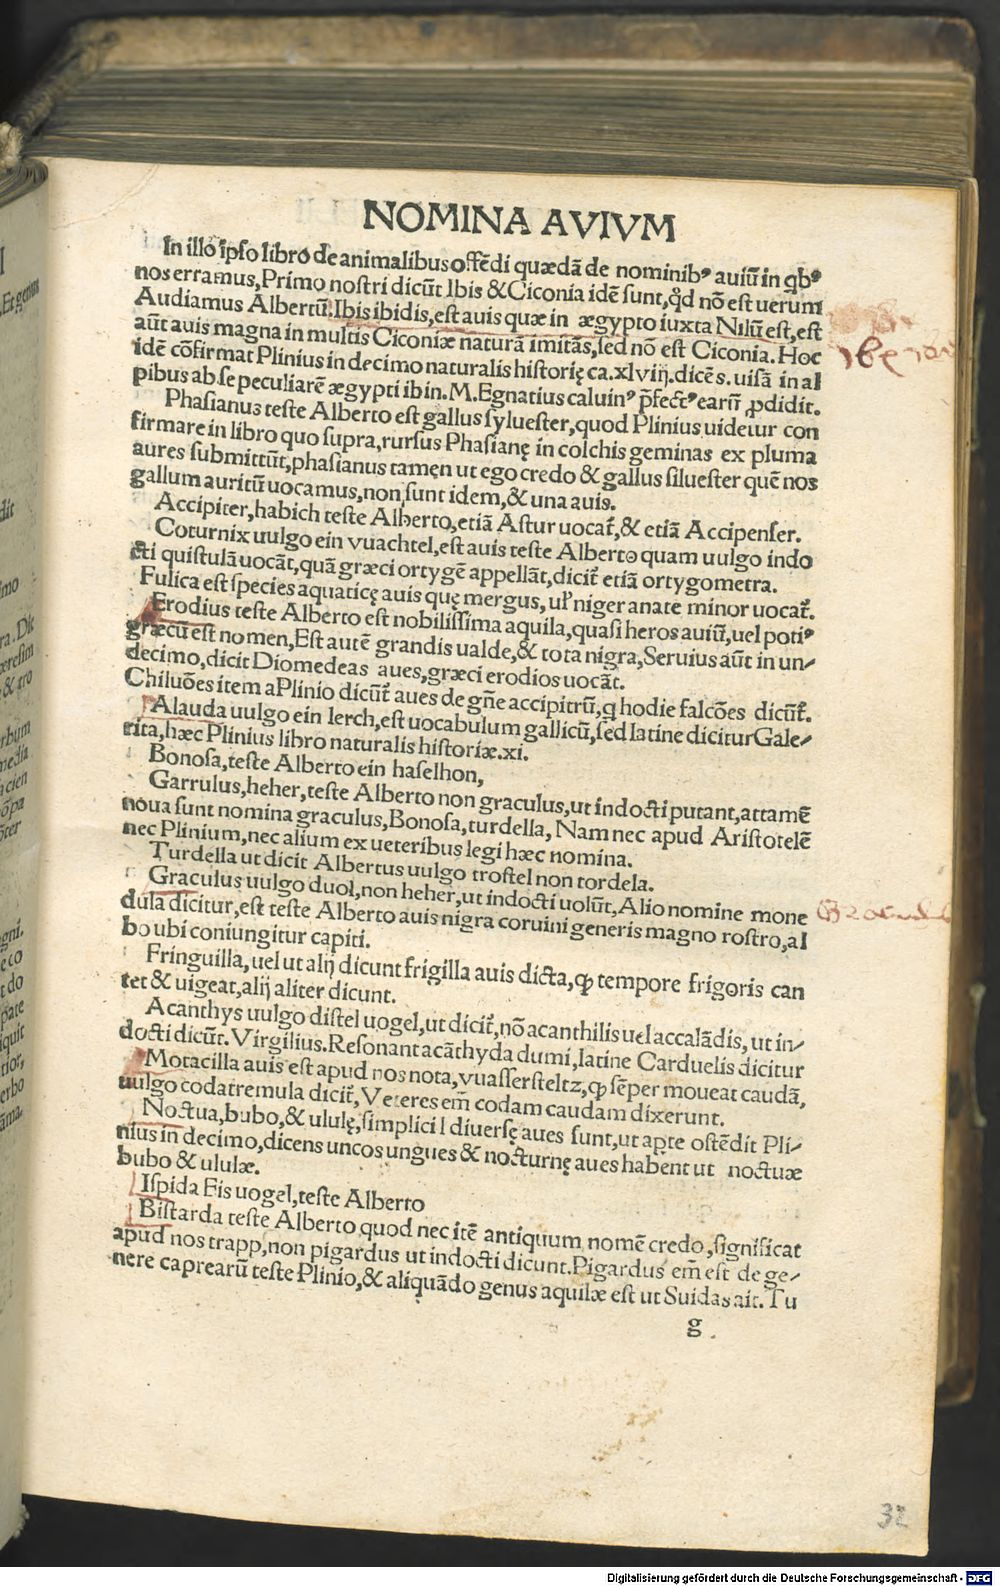 NOMINA AVIVM
In illo ipso libro de animalibus offēdi quædā de nominibꝰ auiū in qbꝰ
nos erramus, Primo nostri dicūt Ibis & Ciconia idē sunt, qd nō est uerum
Audiamus Albertū. Ibis ibidis, est auis quæ in ægypto iuxta Nilū est, est
aūt auis magna in multis Ciconiæ naturā imitās, sed nō est Ciconia. Hoc
idē cōfirmat Plinius in decimo naturalis historię ca. xlviij. dicēs. uisā in al
pibus ab se peculiarē ægypti ibin. M. Egnatius caluinꝰ p̄fectꝰ earū ꝓdidit.
Phasianus teste Alberto est gallus syluester, quod Plinius uidetur con
firmare in libro quo supra, rursus Phasianę in colchis geminas ex pluma
aures submittūt, phasianus tamen ut ego credo & gallus siluester quē nos
gallum auritū uocamus, non sunt idem, & una auis.
Accipiter, habich teste Alberto, etiā Astur uocat̄, & etiā Accipenser.
Coturnix uulgo ein vuachtel, est auis teste Alberto quam uulgo indo
cti quistulā uocāt, quā græci ortygē appellāt, dicit̄ etiā ortygometra.
Fulica est species aquaticę auis quę mergus, uł niger anate minor uocat̄.
Erodius teste Alberto est nobilissima aquila, quasi heros auiū, uel potiꝰ
græcū est nomen, Est autē grandis ualde, & tota nigra, Seruius aūt in un⸗
decimo, dicit Diomedeas aues, græci erodios uocāt.
Chiluōes item a Plinio dicūt̄ aues de gñe accipitrū, q hodie falcōes dicūt̄.
Alauda uulgo ein lerch, est uocabulum gallicū, sed latine dicitur Gale⸗
rita, hæc Plinius libro naturalis historiæ. xi.
Bonosa, teste Alberto ein haselhon,
Garrulus, heher, teste Alberto non graculus, ut indocti putant, attamē
noua sunt nomina graculus, Bonosa, turdella, Nam nec apud Aristotelē
nec Plinium, nec alium ex ueteribus legi hæc nomina.
Turdella ut dicit Albertus uulgo trostel non tordela.
Graculus uulgo duol, non heher, ut indocti uolūt, Alio nomine mone
dula dicitur, est teste Alberto auis nigra coruini generis magno rostro, al
bo ubi coniungitur capiti.
Fringuilla, uel ut alij dicunt frigilla auis dicta, ꝙ tempore frigoris can
tet & uigeat, alij aliter dicunt.
Acanthys uulgo distel uogel, ut dicit̄, nō acanthilis uel accalādis, ut in⸗
docti dicūt. Virgilius. Resonant acāthyda dumi, latine Carduelis dicitur
Motacilla auis est apud nos nota, vuassersteltz, ꝙ sēper moueat caudā,
uulgo codatremula dicit̄, Veteres em̄ codam caudam dixerunt.
Noctua, bubo, & ululę, simplici l diuersę aues sunt, ut apte ostēdit Pli⸗
nius in decimo, dicens uncos ungues & nocturnę aues habent ut noctuæ
bubo & ululæ.
Ispida Eis uogel, teste Alberto
Bistarda teste Alberto quod nec itē antiquum nomē credo, significat
apud nos trapp, non pigardus ut indocti dicunt. Pigardus em̄ est de ge⸗
nere caprearū teste Plinio, & aliquādo genus aquilæ est ut Suidas ait. Tu
g
32
Digitalisierung gefördert durch die Deutsche Forschungsgemeinschaft - DFG